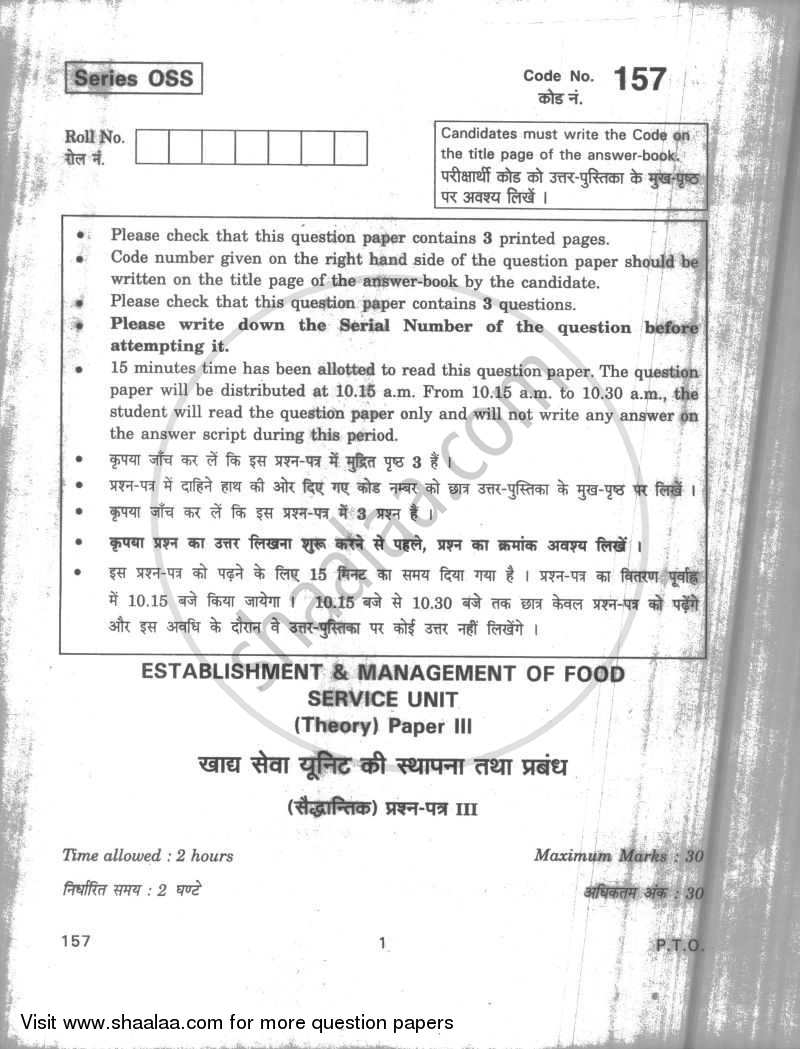 Series OSS
Code No. 157
कोड नं.
Roll No.
रोल नं.
Candidates must write the Code on
the title page of the answer-book.
परीक्षार्थी कोड को उत्तर-पुस्तिका के मुख-पृष्ठ
पर अवश्य लिखें ।
• Please check that this question paper contains 3 printed pages.
• Code number given on the right hand side of the question paper should be
written on the title page of the answer-book by the candidate.
• Please check that this question paper contains 3 questions.
• Please write down the Serial Number of the question before
attempting it.
• 15 minutes time has been allotted to read this question paper. The question
paper will be distributed at 10.15 a.m. From 10.15 a.m. to 10.30 a.m., the
student will read the question paper only and will not write any answer on
the answer script during this period.
• कृपया जाँच कर लें कि इस प्रश्न-पत्र में मुद्रित पृष्ठ 3 हैं ।
• प्रश्न-पत्र में दाहिने हाथ की ओर दिए गए कोड नम्बर को छात्र उत्तर-पुस्तिका के मुख-पृष्ठ पर लिखें ।
• कृपया जाँच कर लें कि इस प्रश्न-पत्र में 3 प्रश्न हैं ।
• कृपया प्रश्न का उत्तर लिखना शुरू करने से पहले, प्रश्न का क्रमांक अवश्य लिखें ।
• इस प्रश्न-पत्र को पढ़ने के लिए 15 मिनट का समय दिया गया है । प्रश्न-पत्र का वितरण पूर्वाह्न
में 10.15 बजे किया जायेगा । 10.15 बजे से 10.30 बजे तक छात्र केवल प्रश्न-पत्र को पढ़ेंगे
और इस अवधि के दौरान वे उत्तर-पुस्तिका पर कोई उत्तर नहीं लिखेंगे ।
shaalaa.com
ESTABLISHMENT & MANAGEMENT OF FOOD
SERVICE UNIT
(Theory) Paper III
खाद्य सेवा यूनिट की स्थापना तथा प्रबंध
(सैद्धान्तिक) प्रश्न-पत्र III
Time allowed : 2 hours
Maximum Marks : 30
निर्धारित समय : 2 घण्टे
अधिकतम अंक : 30
157
1
P.T.O.
Visit www.shaalaa.com for more question papers